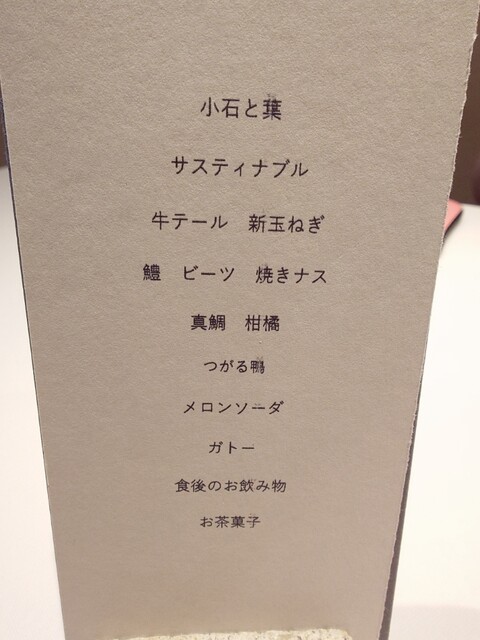 小石と葉
サスティナブル
牛テール　新玉ねぎ
鱧　ビーツ　焼きナス
真鯛　柑橘
つがる鴨
メロンソーダ
ガトー
食後のお飲み物
お茶菓子